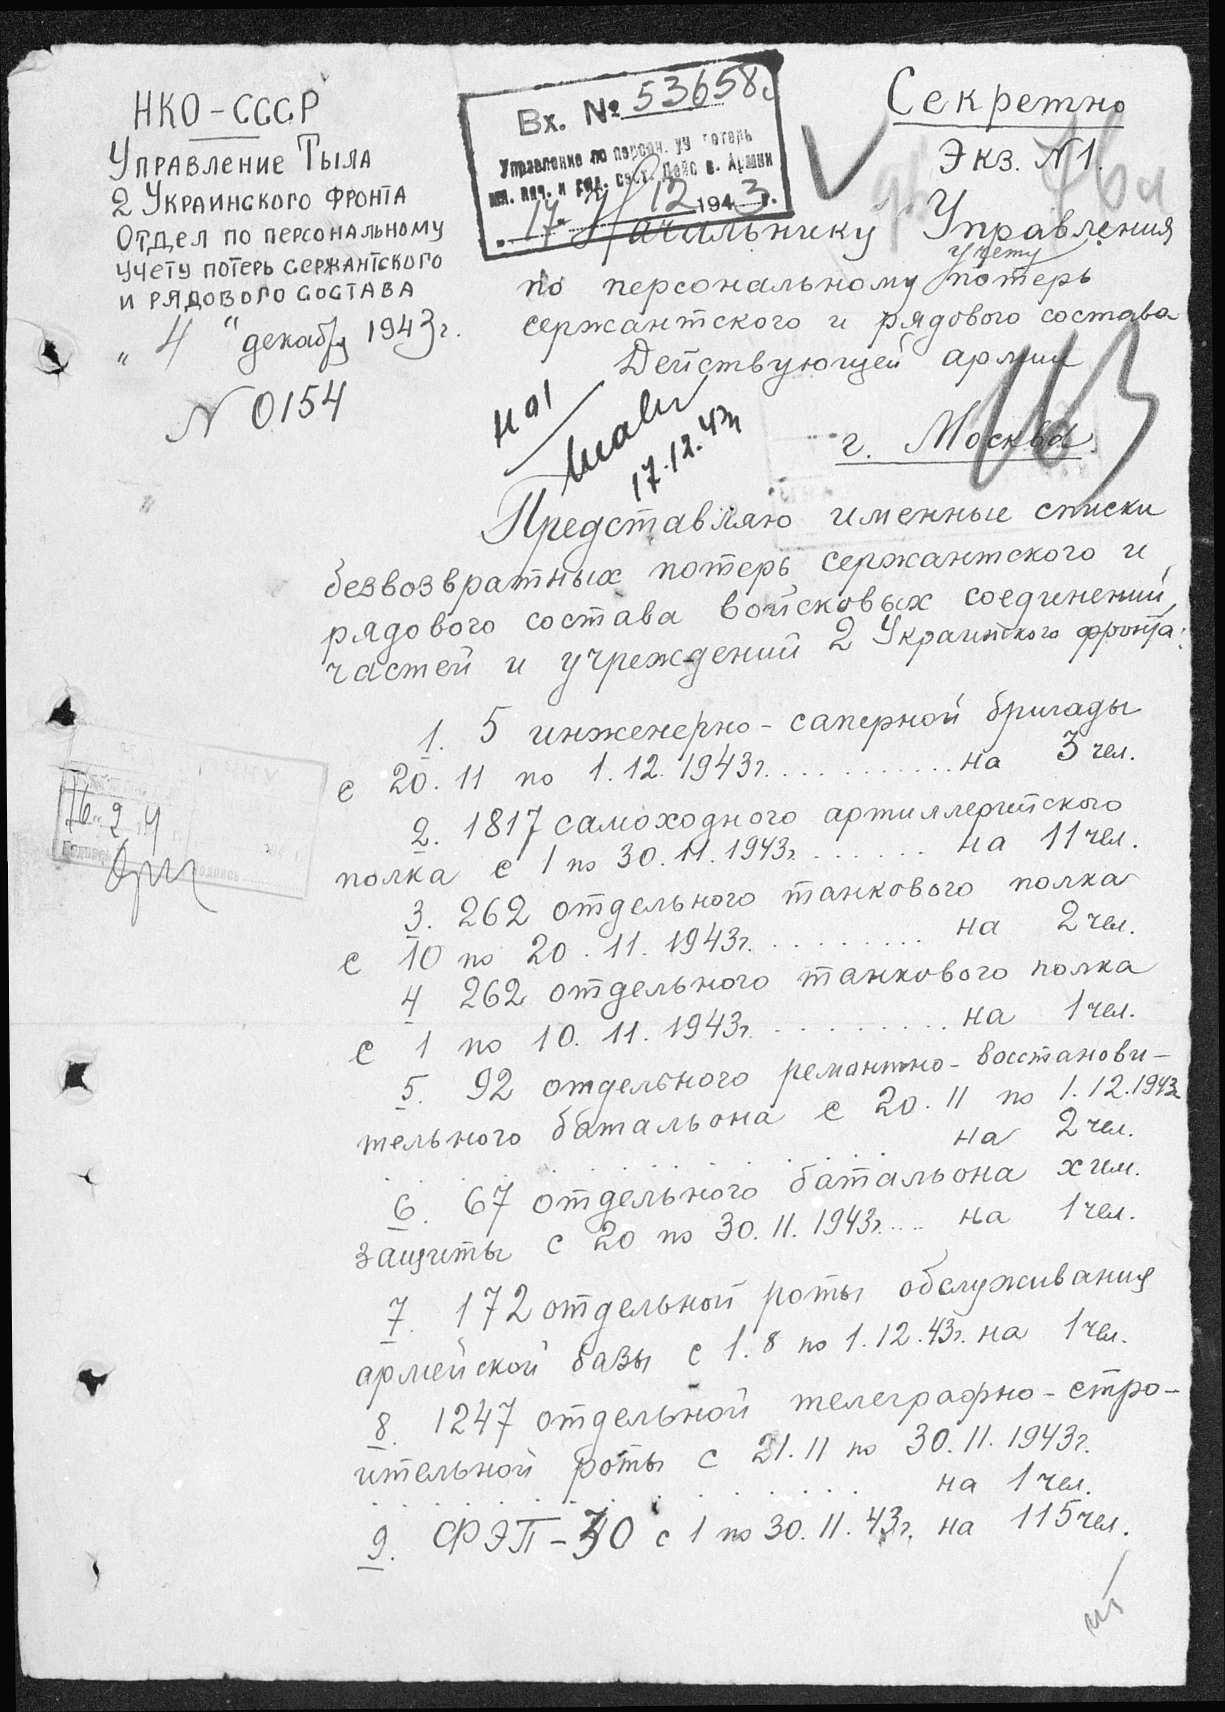 НКО-СССР
Управление Тыла
2 Украинского фронта
Отдел по персональному
учету потерь сержантского
и рядового состава
"4" декабря 1943г.
N 0154
Вх. № 53658с
Управление по персон. уч. потерь
мл. нач. и ряд. сост. Дейс в. Армии
"17" 12 1943 г.
Секретно
Экз. N 1.
Начальнику Управления
учету
по персональному потерь
сержантского и рядового состава
Действующей армии
г. Москва
163
17.12.43
Представляю именные списки
безвозвратных потерь сержантского и
рядового состава войсковых соединений,
частей и учреждений 2 Украинского фронта:
1. 5 инженерно-саперной бригады
с 20.11 по 1.12.1943г. . . . . . . . . . . на 3 чел.
2. 1817 самоходного артиллерийского
полка с 1 по 30.11.1943г. . . . . . . на 11 чел.
3. 262 отдельного танкового полка
с 10 по 20.11.1943г. . . . . . . . . на 2 чел.
4 262 отдельного танкового полка
с 1 по 10.11.1943г. . . . . . . . . . на 1 чел.
5. 92 отдельного ремонтно-восстанови-
тельного батальона с 20.11 по 1.12.1943г
. . . . . . . . . . . . . на 2 чел.
6. 67 отдельного батальона хим.
защиты с 20 по 30.11.1943г. ... на 1 чел.
7. 172 отдельной роты обслуживания
армейской базы с 1.8 по 1.12.43г. на 1 чел.
8. 1247 отдельной телеграфно-стро-
ительной роты с 21.11 по 30.11.1943г.
. . . . . . . . . . . . . . . на 1 чел.
9. ФЭП-30 с 1 по 30.11.43г. на 115 чел.